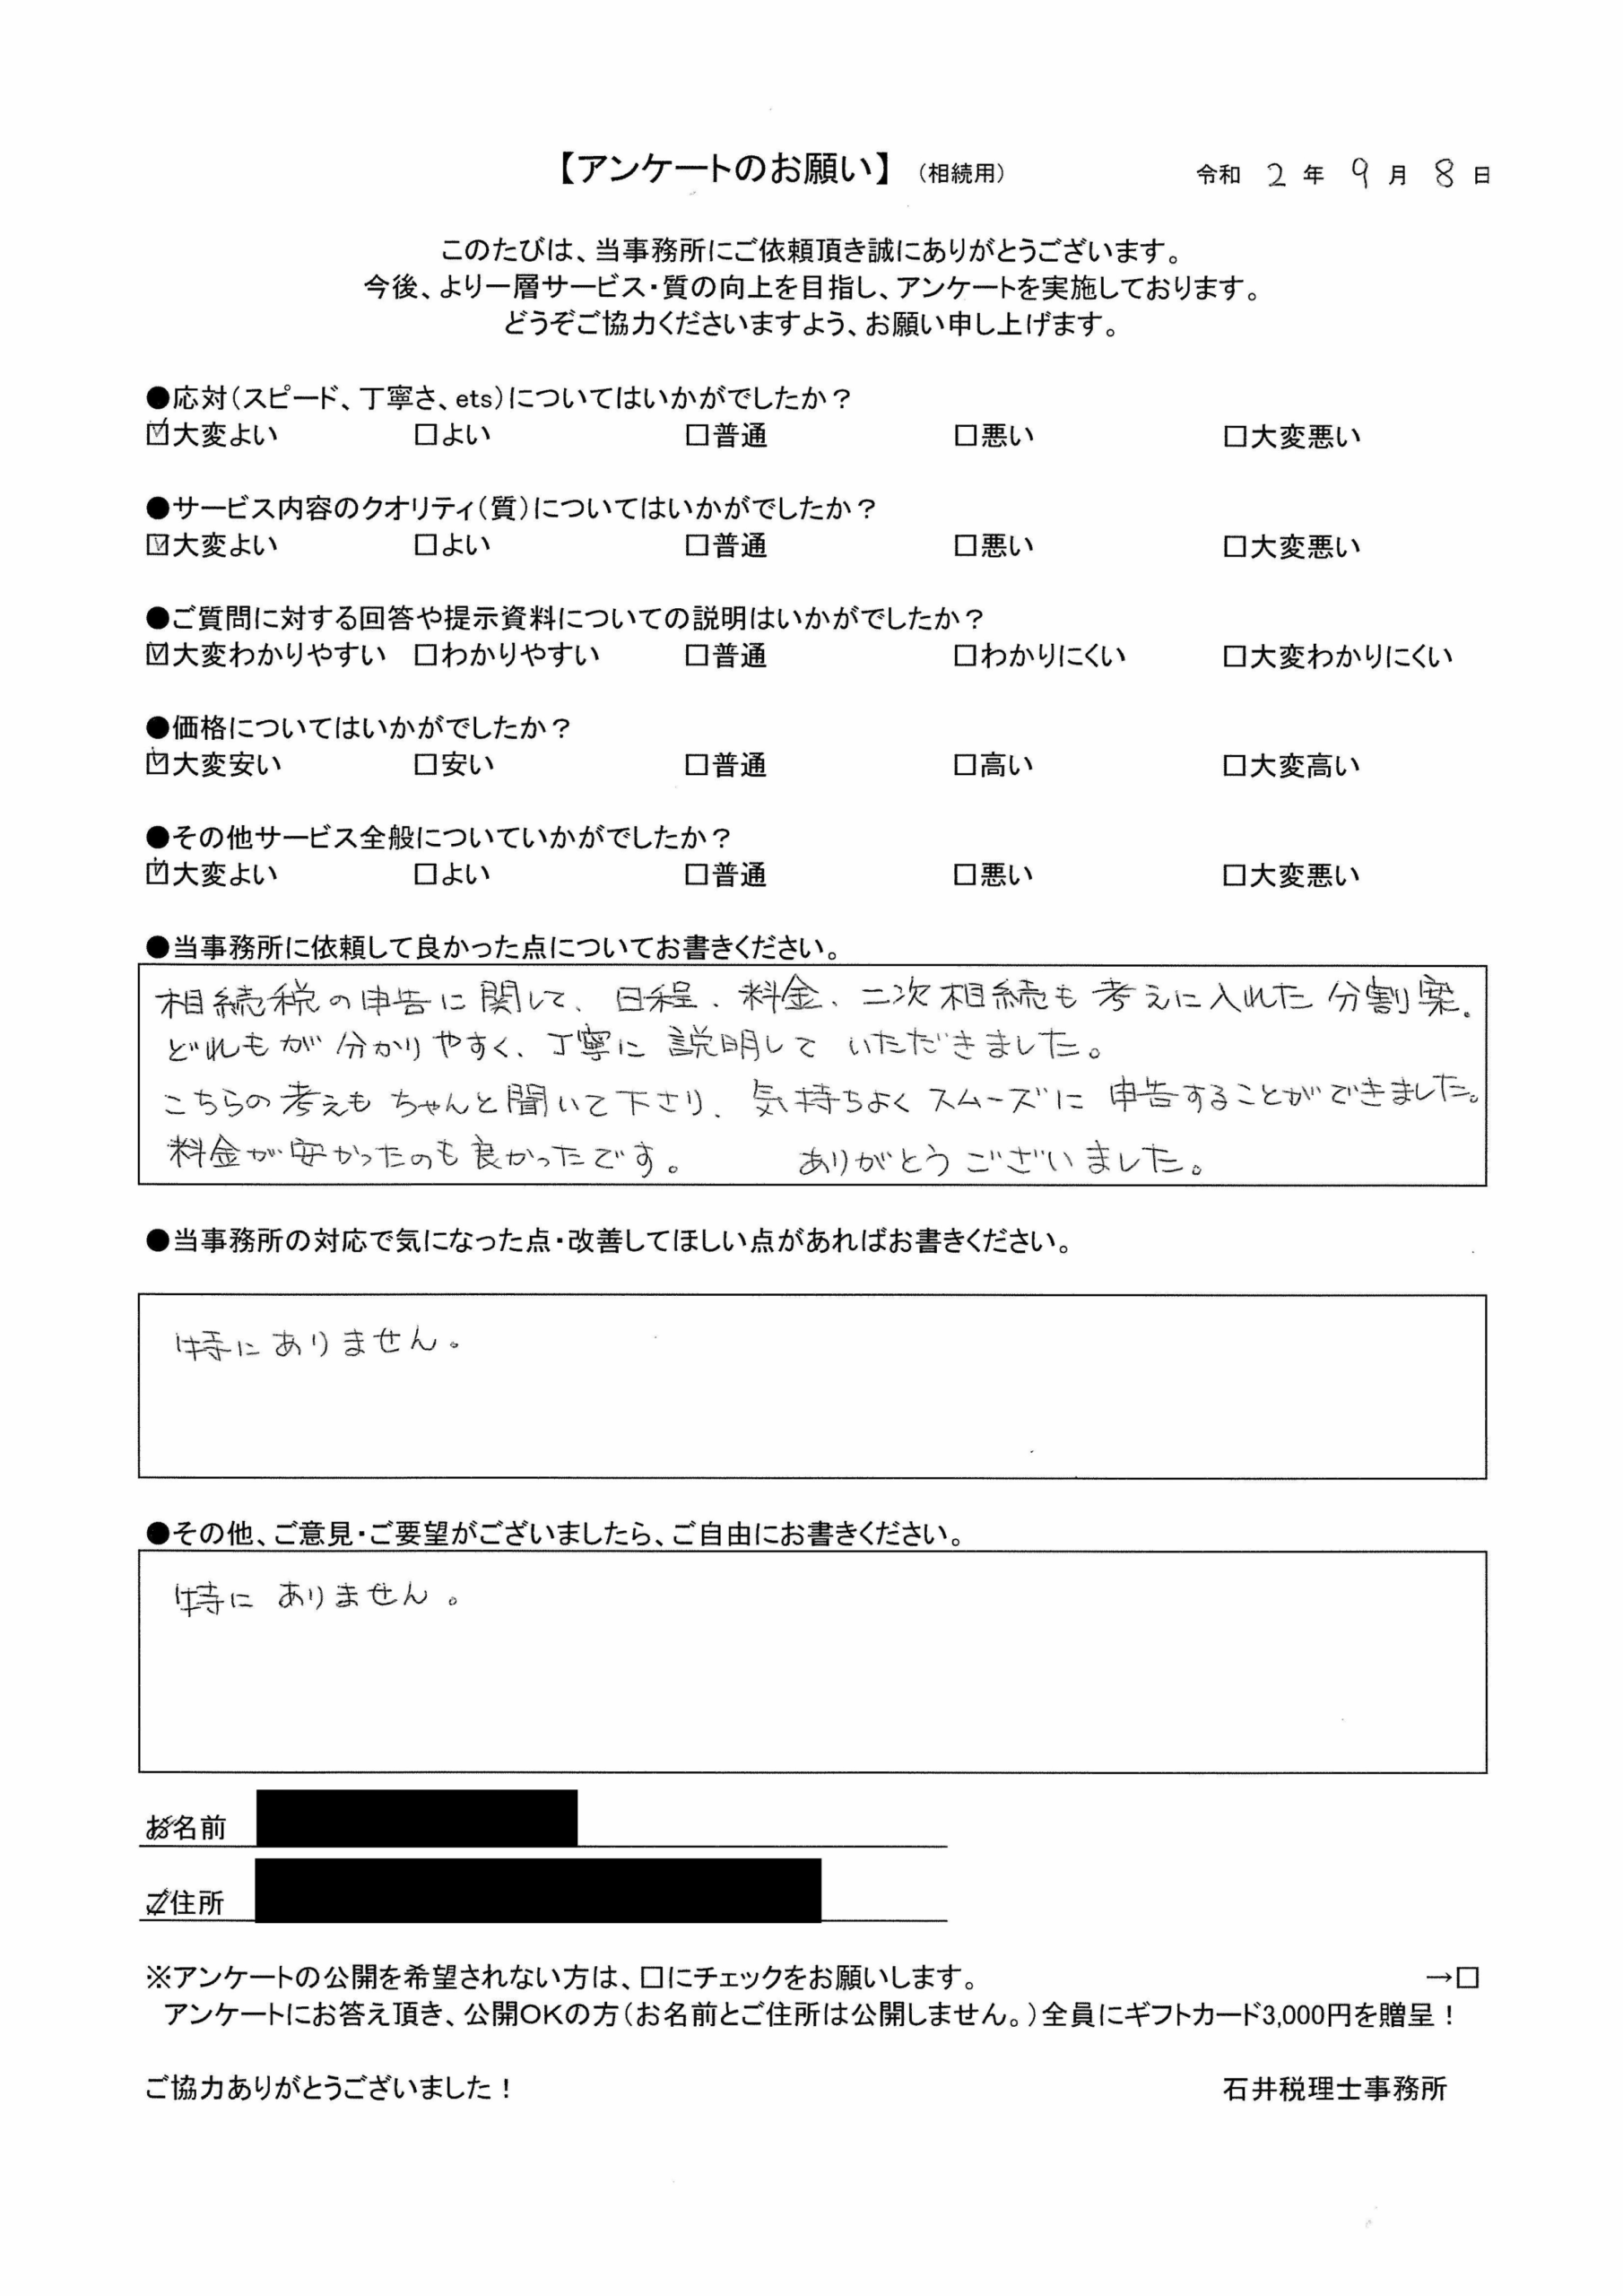 【アンケートのお願い】(相続用) 令和 2 年 9 月 8 日
このたびは、当事務所にご依頼頂き誠にありがとうございます。
今後、より一層サービス・質の向上を目指し、アンケートを実施しております。
どうぞご協力くださいますよう、お願い申し上げます。
●応対(スピード、丁寧さ、ets)についてはいかがでしたか?
☑大変よい □よい □普通 □悪い □大変悪い
●サービス内容のクオリティ(質)についてはいかがでしたか?
☑大変よい □よい □普通 □悪い □大変悪い
●ご質問に対する回答や提示資料についての説明はいかがでしたか?
☑大変わかりやすい □わかりやすい □普通 □わかりにくい □大変わかりにくい
●価格についてはいかがでしたか?
☑大変安い □安い □普通 □高い □大変高い
●その他サービス全般についていかがでしたか?
☑大変よい □よい □普通 □悪い □大変悪い
●当事務所に依頼して良かった点についてお書きください。
相続税の申告に関して、日程、料金、二次相続も考えに入れた分割案。
どれもが分かりやすく、丁寧に説明していただきました。
こちらの考えもちゃんと聞いて下さり、気持ちよくスムーズに申告することができました。
料金が安かったのも良かったです。 ありがとうございました。
●当事務所の対応で気になった点・改善してほしい点があればお書きください。
特にありません。
●その他、ご意見・ご要望がございましたら、ご自由にお書きください。
特にありません。
お名前
ご住所
※アンケートの公開を希望されない方は、□にチェックをお願いします。 →□
アンケートにお答え頂き、公開OKの方(お名前とご住所は公開しません。)全員にギフトカード3,000円を贈呈!
ご協力ありがとうございました! 石井税理士事務所